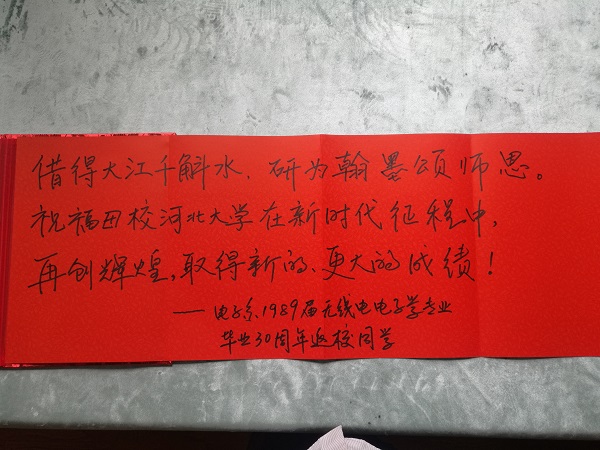 借得大江千斛水，研为翰墨颂师恩。
祝福母校河北大学在新时代征程中，
再创辉煌，取得新的、更大的成绩！
——电子系1989届无线电电子学专业
毕业30周年返校同学